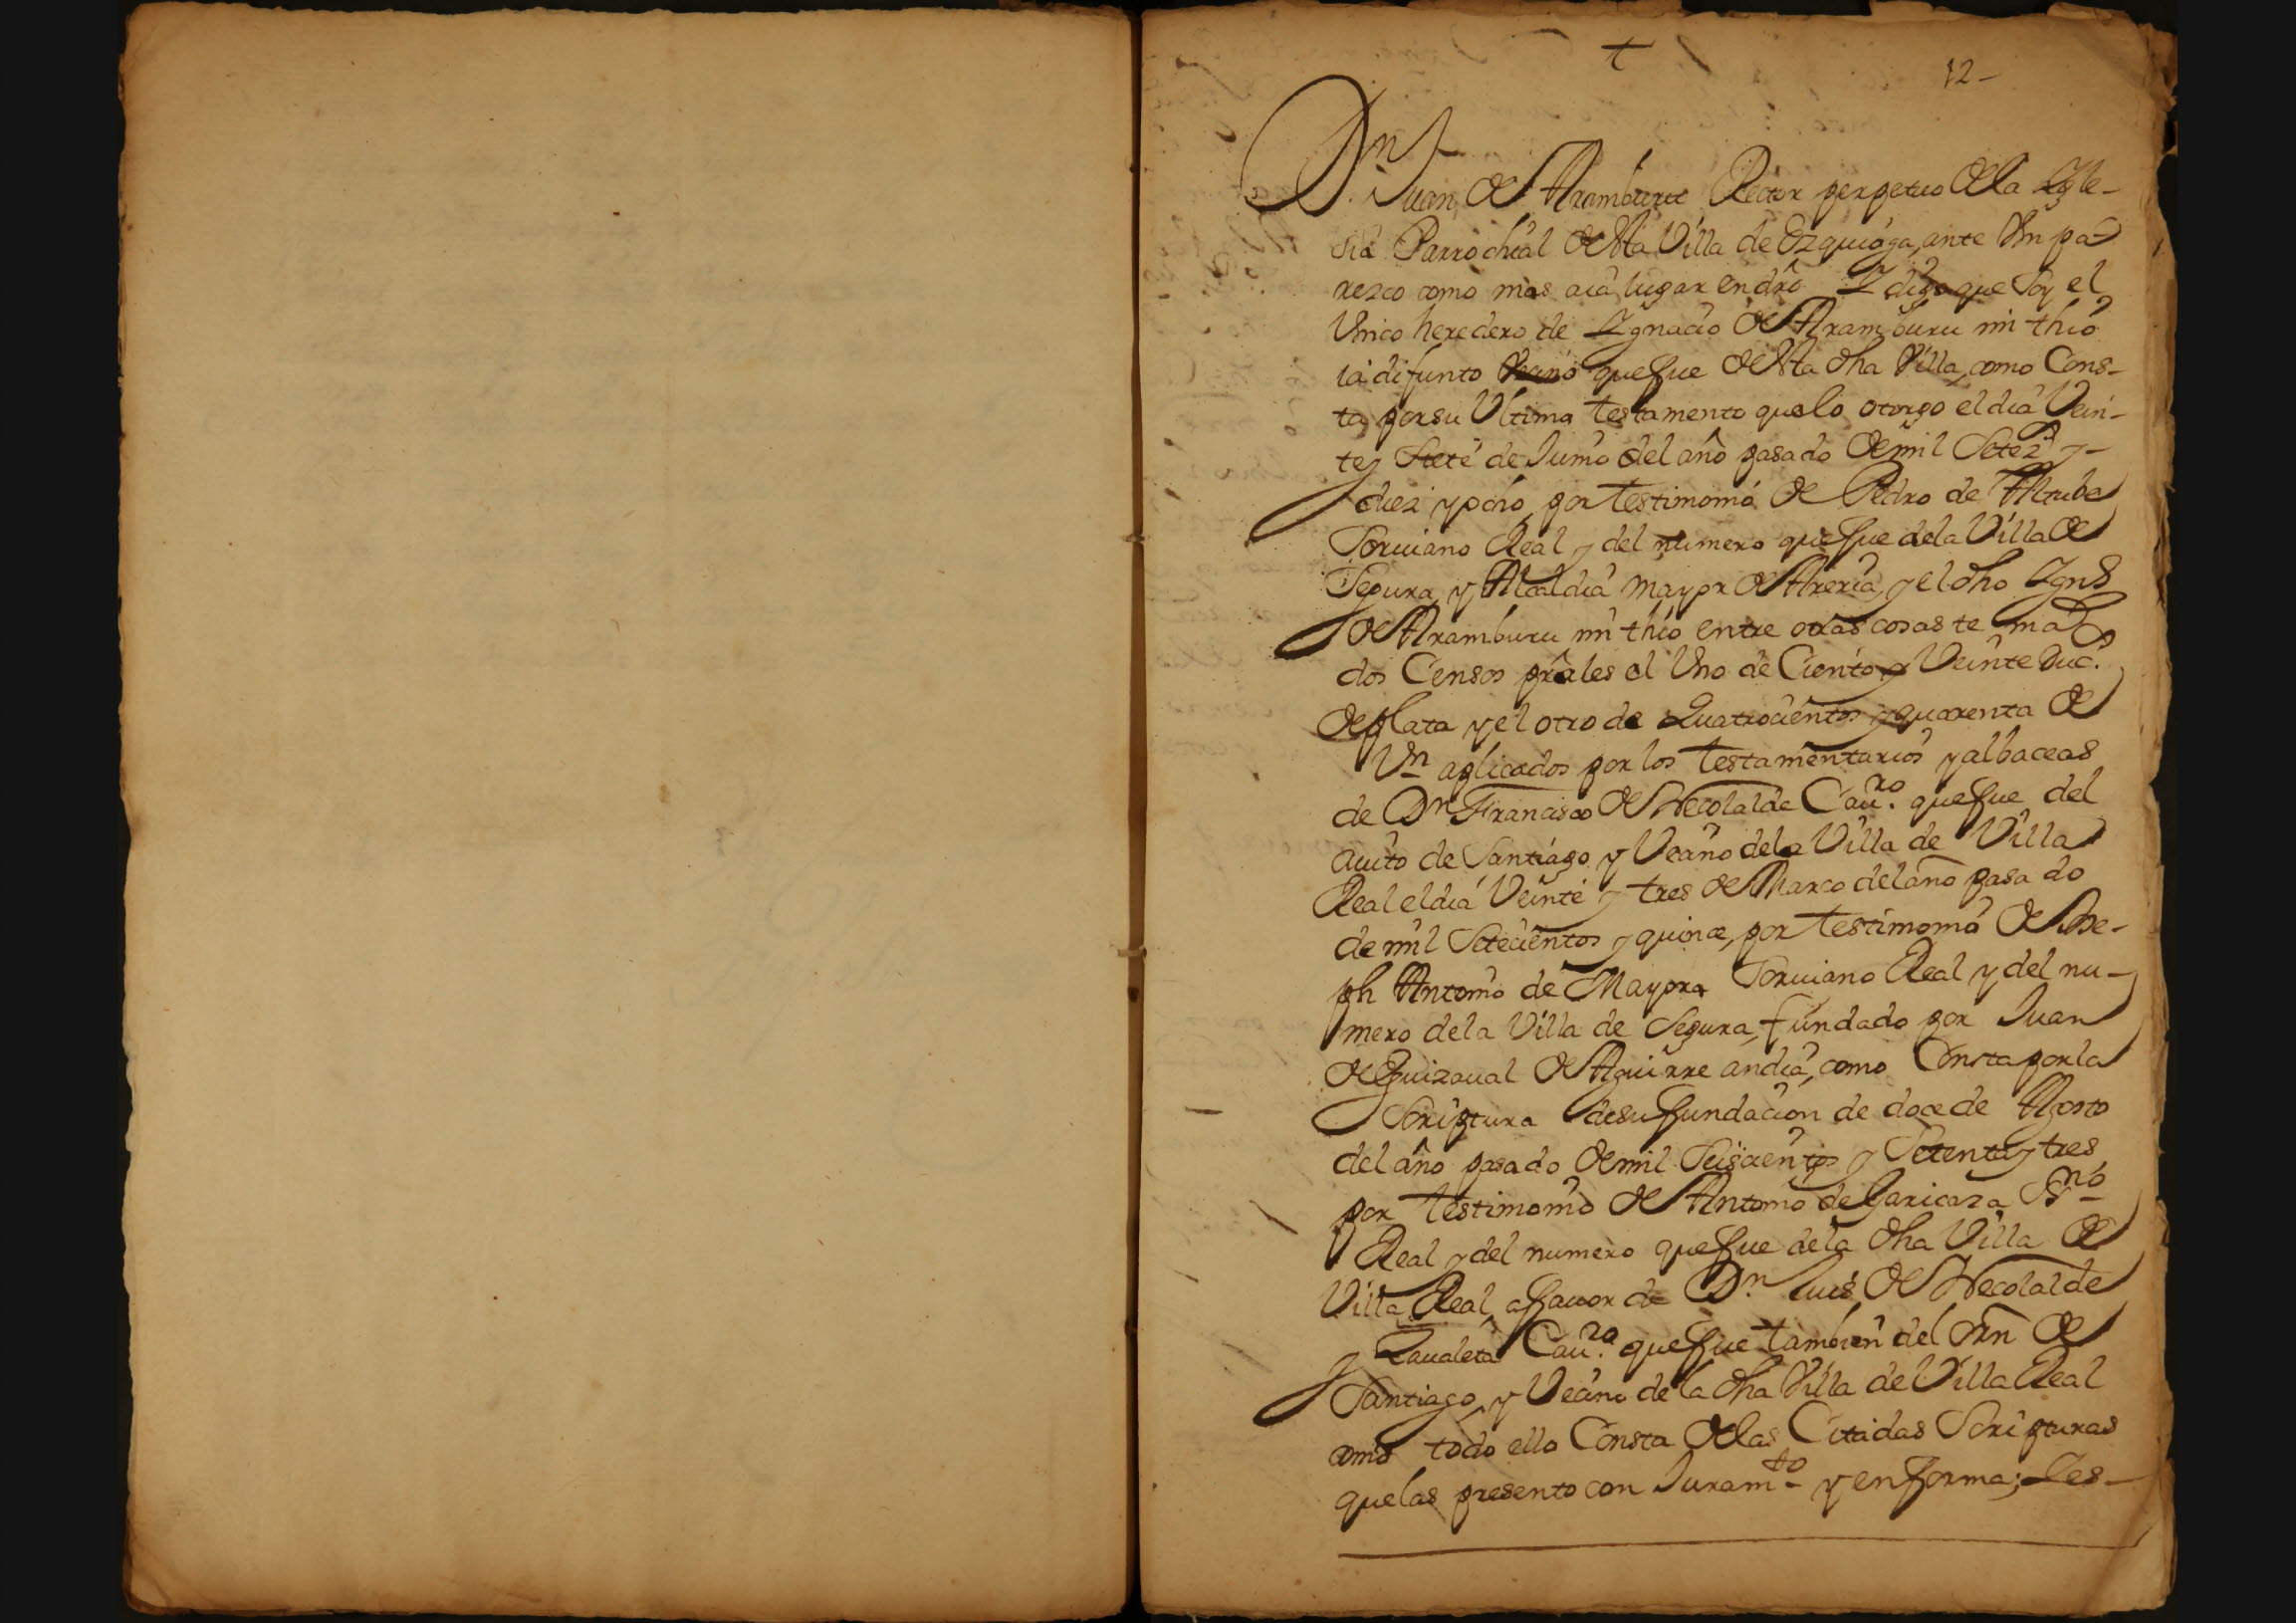 12-
Dn Juan de Aramburu Rector perpetuo de la Yle-
sia Parrochial de sta Villa de Ezquioga, ante Vm pa-
rezco como mas aia lugar en dro Y digo que Soy el
Vnico heredero de Ygnacio de Aramburu mi thio
ia difunto que fue de sta dha Villa, como Cons-
ta por su Vltimo testamento que lo otorgo el dia Vein-
te y Siete de Junio del año pasado de mil Setez.s y
diez y ocho, por testimonio de Pedro de
Scriuano Real y del numero que fue dela Villa de
Segura, y Alcaldia mayor de Areria, y el dho Ygn.o
de Aramburu mi thio entre otras cosas
dos Censos prãles el Vno de Ciento y Veinte Duc.s
de plata y el otro de Quatrocientos y quarenta de
Vn aplicados por los testamentarios y albaceas
de Dn Francisco de Necolalde Cau.ro que fue del
auito de Santiago y Vecino dela Villa de Villa
Real el dia Veinte y tres de Março del año pasado
de mil Setecientos y quince, por testimonio de Jose-
ph Antonio de Mayora Scriuano Real y del nu-
mero dela Villa de Segura, fundado por Juan
de Eguizaual de Aguirre andia, como Consta por la
Scriptura de su fundacion de doce de Agosto
del año pasado de mil Seiscientos y Setenta y tres
por testimonio de Antonio de Garicaza Ss.no
Real y del numero que fue dela dha Villa de
Villa Real, a fauor de Dn Luis de Necolalde
y Zaualeta Cau.ro que fue tambien del orn de
Santiago, y Vecino de la dha Villa de Villa Real
como todo ello Consta de las Citadas Scripturas
que las presento con Juram.to y en forma; Y es-